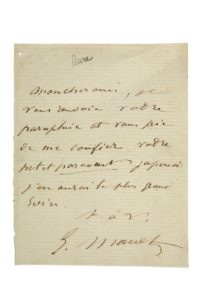 Rare
Mon cher ami, je
vous renvoie votre
parapluie et vous prie
de me confier votre
petit paravent japonais
j'en aurai le plus grand
soin.
t. à v.
E. Manet